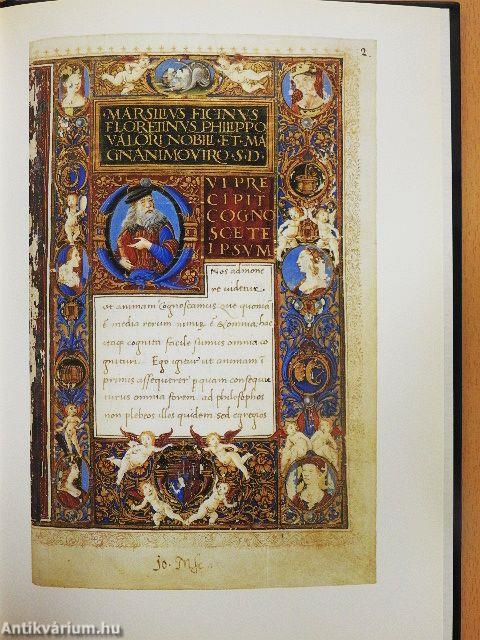 2.
MARSILIVS FICINVS
FLORETINVS PHILIPPO
VALORI NOBILI ET MA
GNANIMO VIRO S D
VI PRE
CIPIT
COGNO
SCE TE
IPSVM
Nos admone
re videtur
ut animam cognoscamus que quonia
e media rerum
cognita facile sumus omnia co
gnituri. Ego igitur ut animam i
primis assequerer p quam consequu
turus omnia forem ad philosophos
non plebeos illos quidem sed egregios
jo. M
Antikvárium.hu